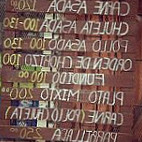 CARNE ASADA 120.00
CHULETA ASADA
POLLO ASADO 100-130
ORDEN DE CHORIZO 100.
FUNDIDO 100.00
PLATO MIXTO 200
CARNE (POLLO CHULETA)
PARRILLADA 250